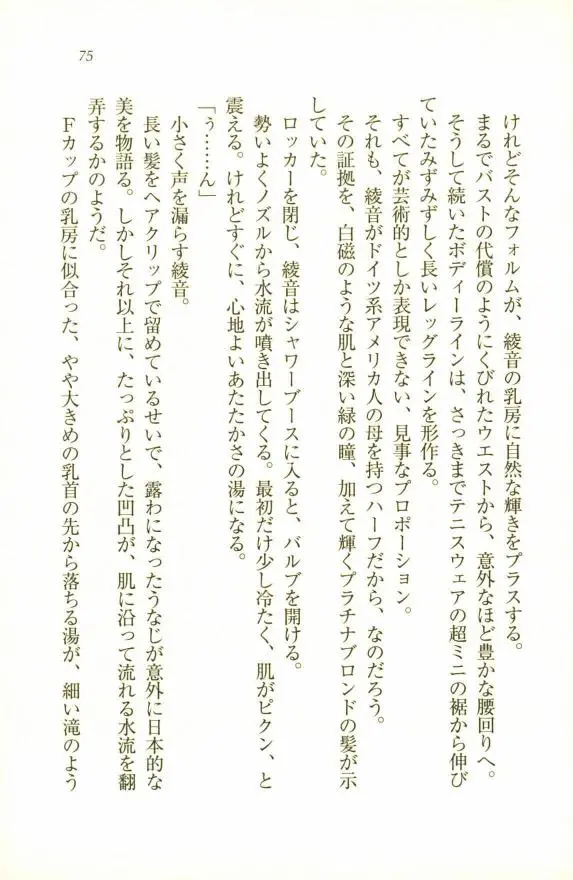 75
けれどそんなフォルムが、綾音の乳房に自然な輝きをプラスする。
まるでバストの代償のようにくびれたウエストから、意外なほど豊かな腰回りへ。
そうして続いたボディーラインは、さっきまでテニスウェアの超ミニの裾から伸び
ていたみずみずしく長いレッグラインを形作る。
すべてが芸術的としか表現できない、見事なプロポーション。
それも、綾音がドイツ系アメリカ人の母を持つハーフだから、なのだろう。
その証拠を、白磁のような肌と深い緑の瞳、加えて輝くプラチナブロンドの髪が示
していた。
ロッカーを閉じ、綾音はシャワーブースに入ると、バルブを開ける。
勢いよくノズルから水流が噴き出してくる。最初だけ少し冷たく、肌がピクン、と
震える。けれどすぐに、心地よいあたたかさの湯になる。
「ぅ……ん」
小さく声を漏らす綾音。
長い髪をヘアクリップで留めているせいで、露わになったうなじが意外に日本的な
美を物語る。しかしそれ以上に、たっぷりとした凹凸が、肌に沿って流れる水流を翻
弄するかのようだ。
Ｆカップの乳房に似合った、やや大きめの乳首の先から落ちる湯が、細い滝のよう